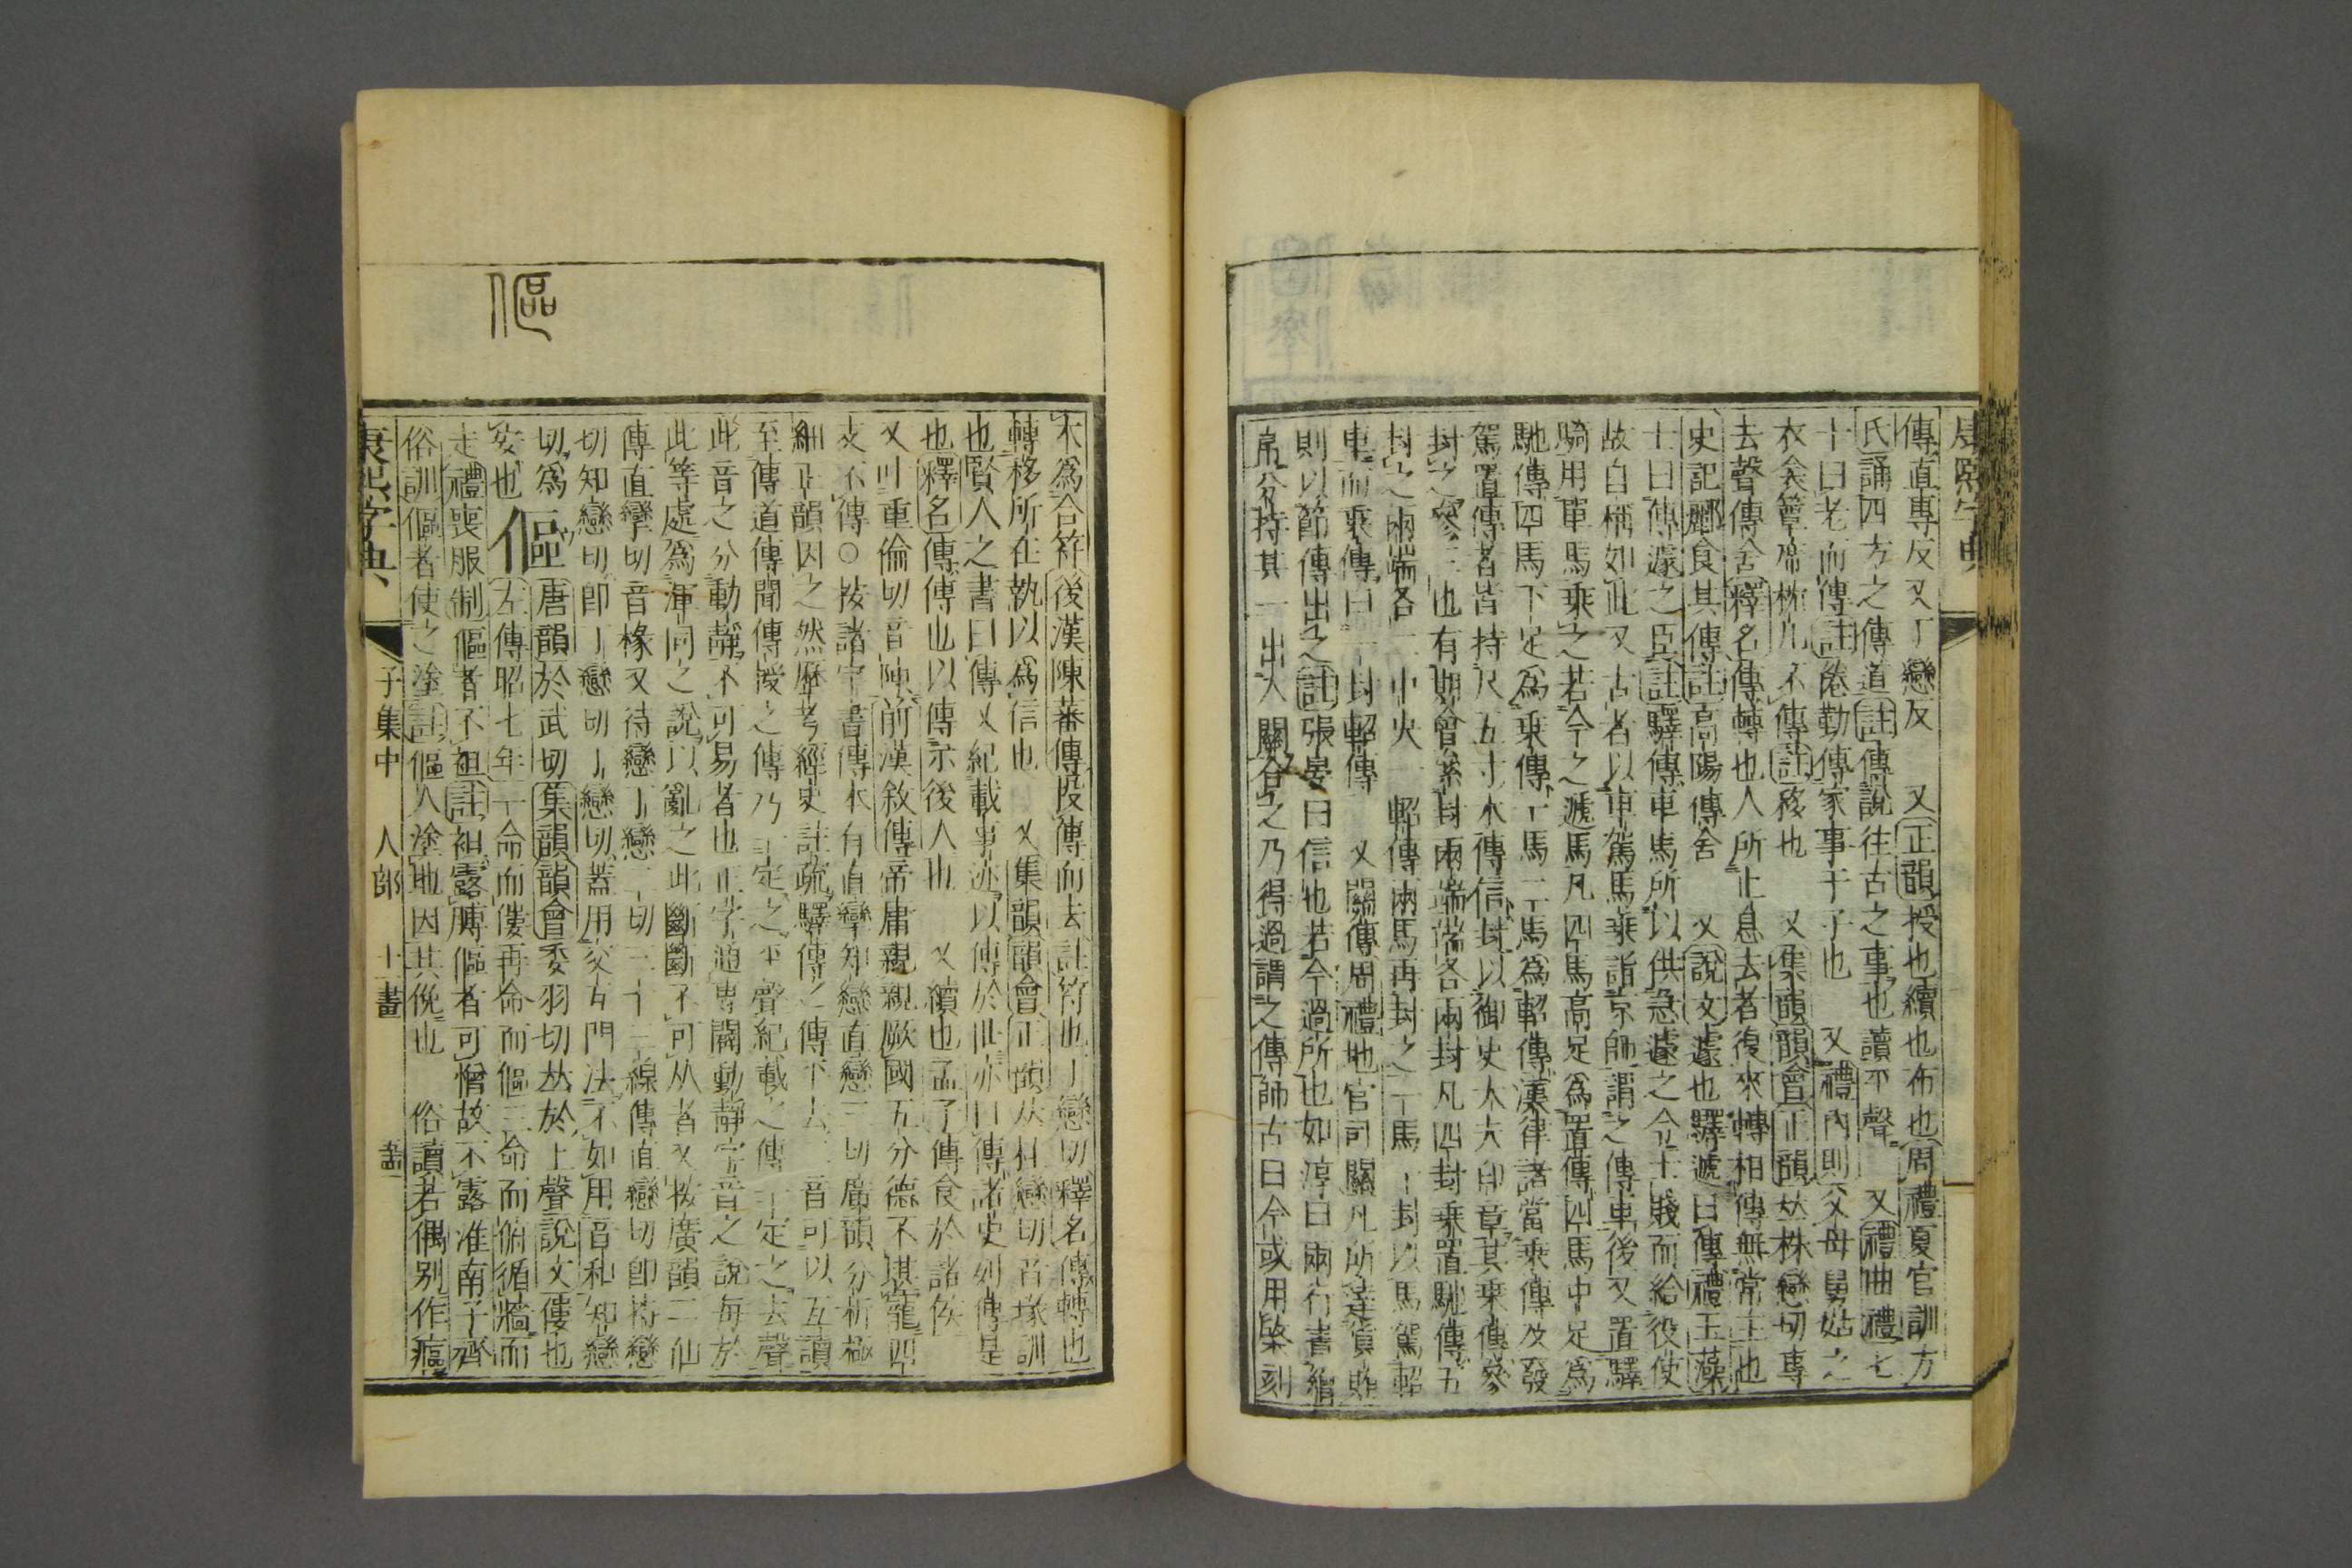 康熙字典
傳直專反又丁戀反 又正韻授也續也布也周禮夏官訓方
氏誦四方之傳道註傳說往古之事也讀平聲 又禮曲禮七
十曰老而傳註倦勤傳家事于子也 又禮內則父母舅姑之
衣衾簟席枕几不傳註移也 又集韻韻會正韻𠀤株戀切專
去聲傳舍釋名傳轉也人所止息去者復來轉相傳無常主也
史記酈食其傳註高陽傳舍 又說文遽也驛遞曰傳禮玉藻
士曰傳遽之臣註驛傳車馬所以供急遽之令士賤而給役使
故自稱如此又古者以車駕馬乘詣京師謂之傳車後又置驛
騎用單馬乘之若今之遞馬凡四馬高足爲置傳四馬中足爲
馳傳四馬下足爲乘傳一馬二馬爲軺傳漢律諸當乘傳及發
駕置傳者皆持尺五寸木傳信封以御史大夫印章其乘傳參
封之參三也有期會累封兩端端各兩封凡四封乘置馳傳五
封之兩端各二中央一軺傳兩馬再封之一馬一封以馬駕軺
車而乘傳曰一封軺傳 又關傳周禮地官司關凡所達貨賄
則以節傳出之註張晏曰信也若今過所也如淳曰兩行書繒
帛分持其一出入關合之乃得過謂之傳師古曰今或用棨刻
木爲合符後漢陳蕃傳投傳而去註符也丁戀切釋名傳轉也
轉移所在執以爲信也 又集韻韻會正韻𠀤柱戀切音瑑訓
也賢人之書曰傳又紀載事迹以傳於世亦曰傳諸史列傳是
也釋名傳傳也以傳示後人也 又續也孟子傳食於諸侯
又叶重倫切音陳前漢敘傳帝庸親親厥國五分德不堪寵四
支不傳○按諸字書傳本有直攣知戀直戀三切廣韻分析極
細正韻因之然歷考經史註疏驛傳之傳平去二音可以互讀
至傳道傳聞傳授之傳乃一定之平聲紀載之傳一定之去聲
此音之分動靜不可易者也正字通專闢動靜字音之說每於
此等處爲渾同之說以亂之此斷斷不可从者又按廣韻二仙
傳直攣切音椽又待戀丁戀二切三十三線傳直戀切卽待戀
切知戀切卽丁戀切丁戀切蓋用交互門法不如用音和知戀
切爲
安也 傴 唐韻於武切集韻韻會委羽切𠀤於上聲說文僂也
傴
左傳昭七年一命而僂再命而傴三命而俯循牆而
走禮喪服制傴者不袒註袒露膊傴者可憎故不露淮南子齊
俗訓傴者使之塗註傴人塗地因其俛也 俗讀若偶別作㾔
康熙字典 子集中 人部 十一畫